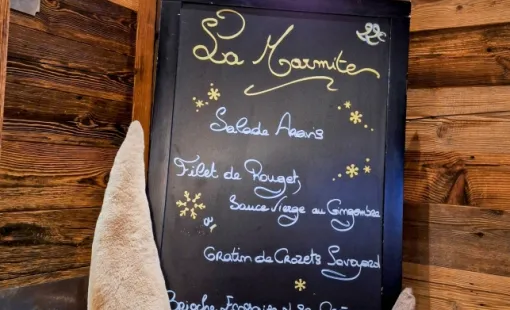 La Marmite
Salade Aravis
Filet de Rouget,
Sauce Vierge au Gingembre
Gratin de Crozets Savoyard
Brioche